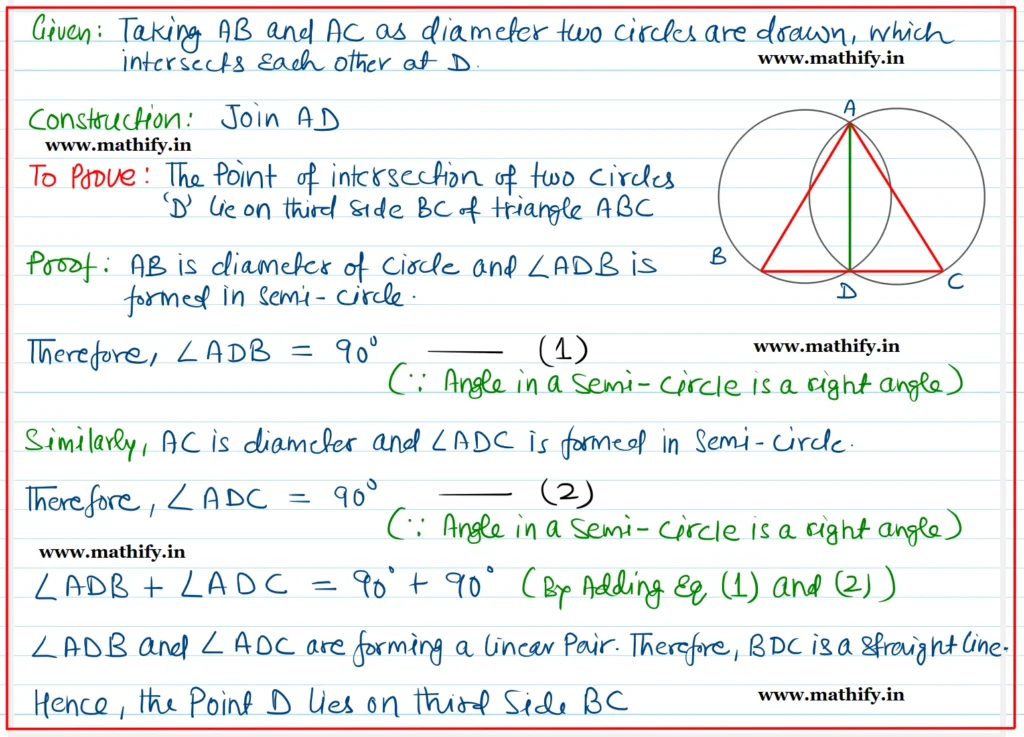 Given: Taking AB and AC as diameter two circles are drawn, which
intersects each other at D.
www.mathify.in
Construction: Join AD
www.mathify.in
To Prove: The Point of intersection of two circles
'D' lie on third side BC of triangle ABC
A
B
D
C
Proof: AB is diameter of circle and ∠ADB is
formed in semi-circle.
Therefore, ∠ADB = 90° —— (1)
www.mathify.in
(∵ Angle in a semi-circle is a right angle)
Similarly, AC is diameter and ∠ADC is formed in semi-circle.
Therefore, ∠ADC = 90° —— (2)
(∵ Angle in a semi-circle is a right angle)
www.mathify.in
∠ADB + ∠ADC = 90° + 90° (By Adding Eq (1) and (2))
∠ADB and ∠ADC are forming a linear Pair. Therefore, BDC is a straight line.
Hence, the Point D lies on third Side BC
www.mathify.in